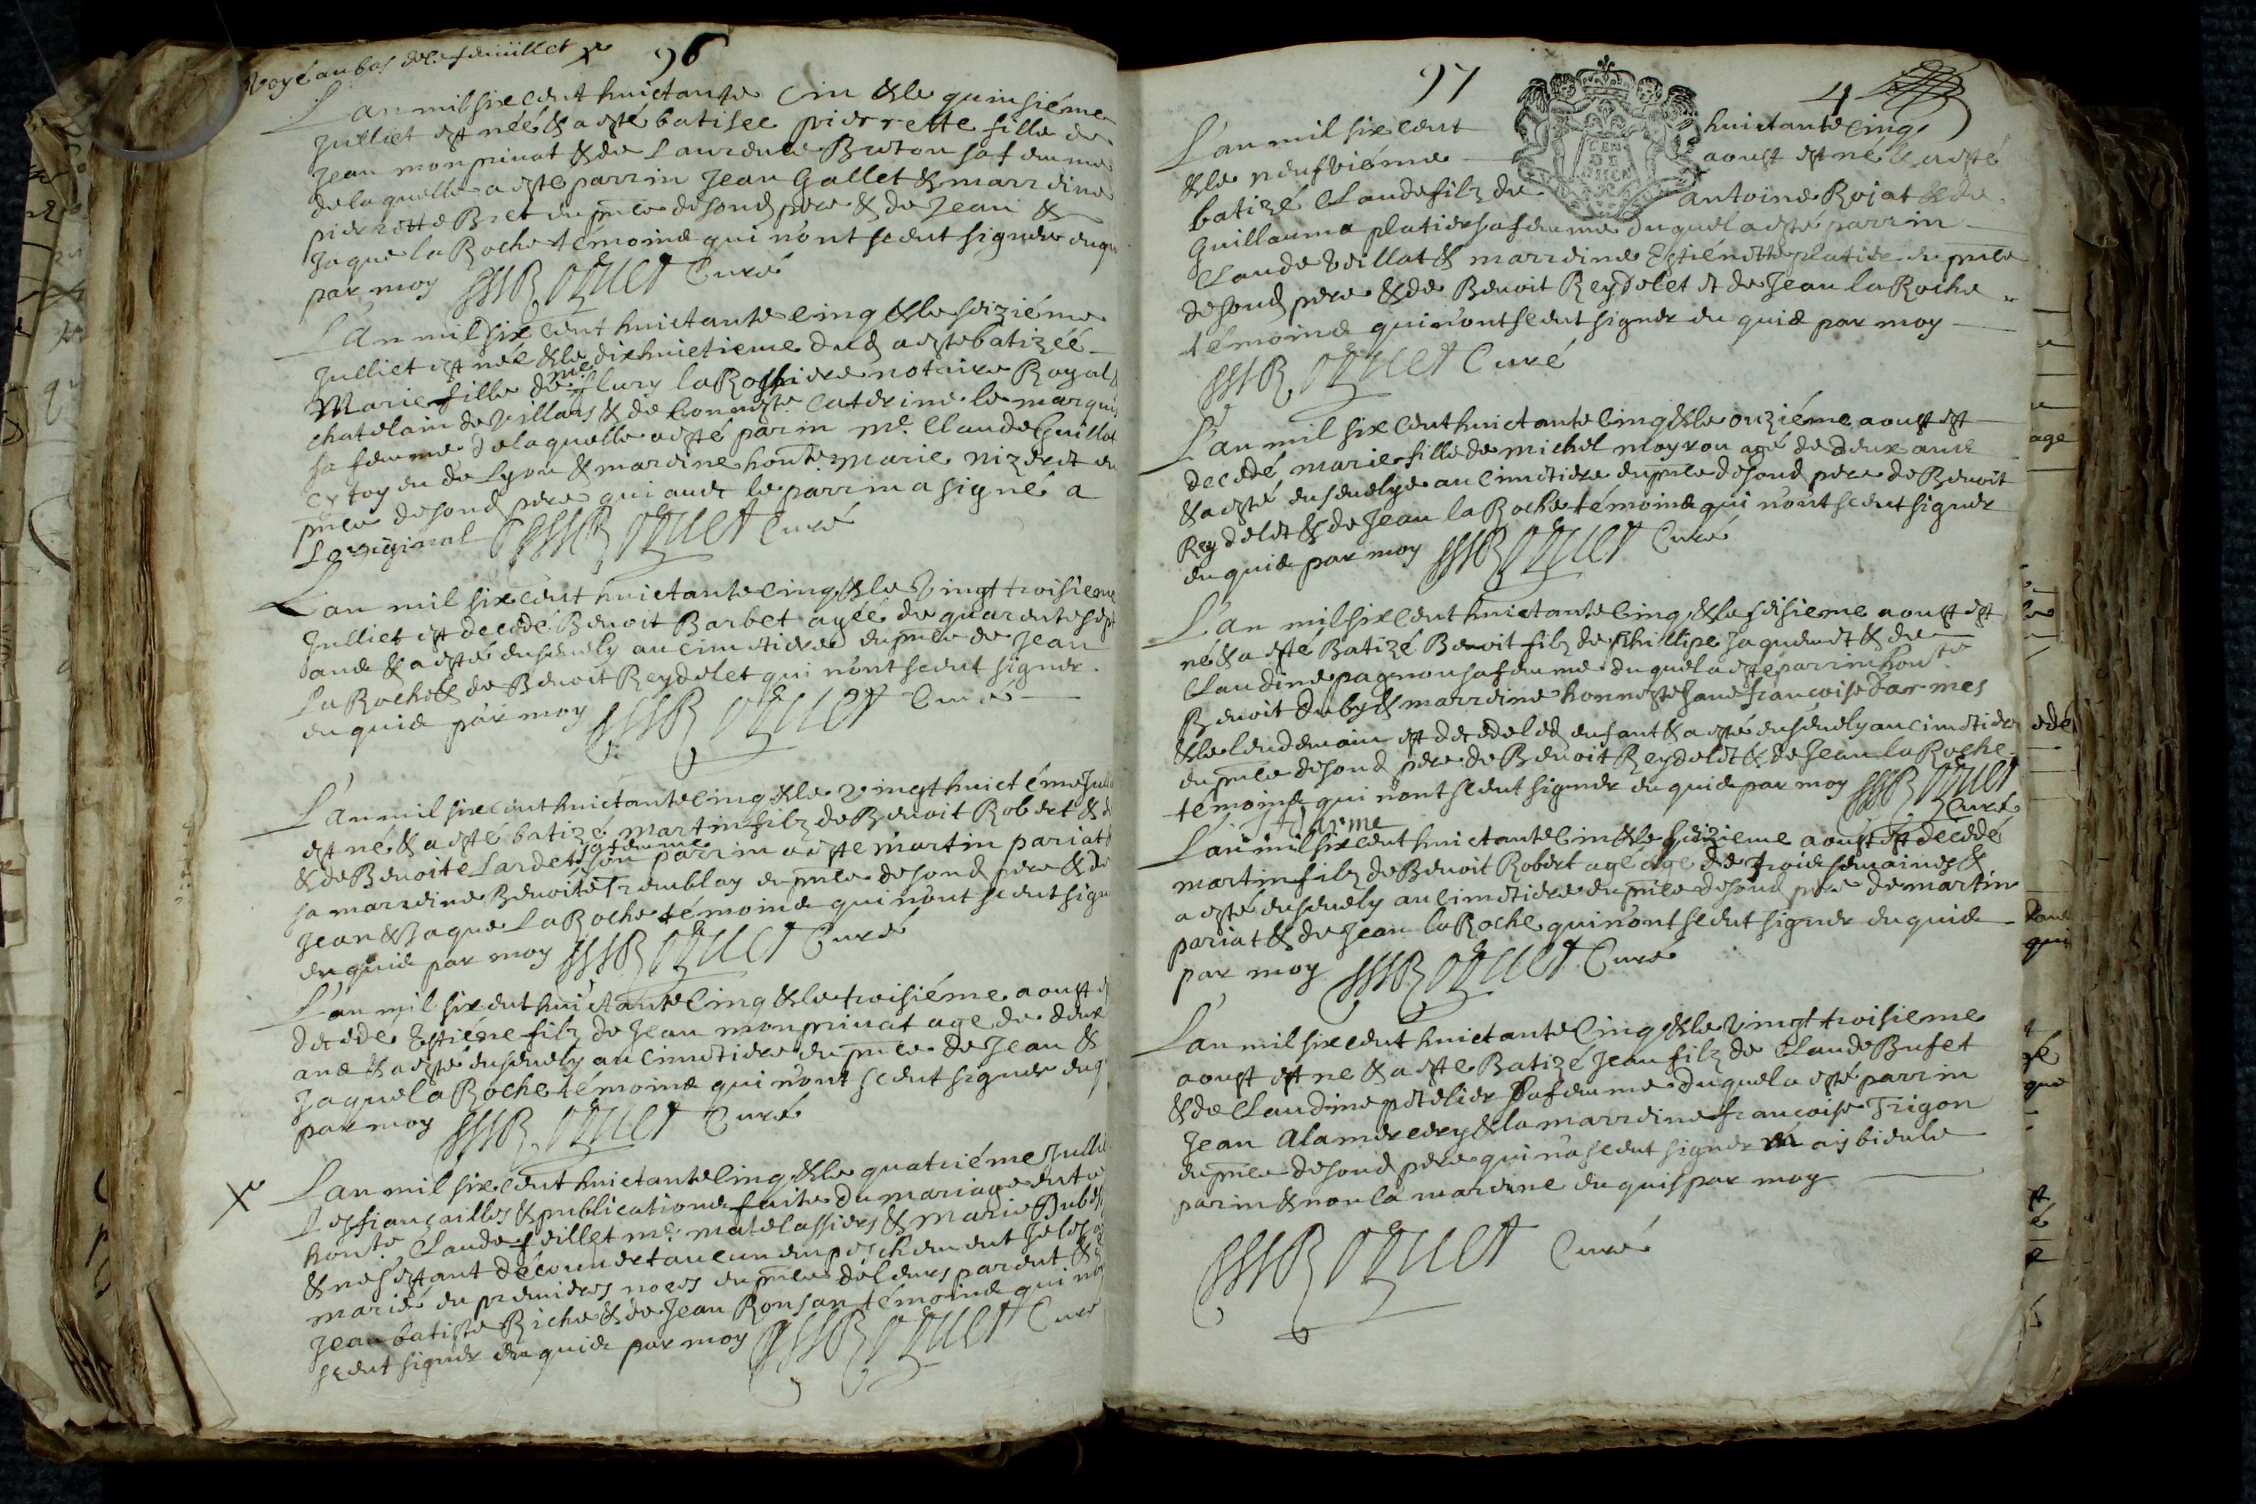 Voyé au bas de ce feuillet
96
L'an mil six cent huictante cin & le quinsiéme
Julliet est néé & a esté batisée pierrette fille de
Jean monprivat & de Laurence Breton sa femme
de laquelle a esté parrin Jean Gallet & marreine
pierrette Bret en pñce de sond père & de Jean &
Jaque la Roche témoins qui n'ont sceut signer enquis
par moy Rozuet Curé
L'An mil six cent huictante cinq & le seiziéme
Julliet est née & le dixhuictieme dud a esté batizéé
Marie fille de me flury la Rochiere notaire Royal
chatelain de villars & de honneste Caterine le marquis
sa femme de laquelle a esté parin me. Claude Guillot
cytoyen de Lyon & mareine honte marie nizeret en
pñce de sond père qui avec le parrin a signé a
Loriginal Rozuet Curé
L'an mil six cent huictante cinq & le vingt troisieme
Julliet est decedé Benoit Barbet agéé de quarente sept
ans & a esté ensevely au cimetiere en pñce de Jean
La Roche & de Benoit Reydelet qui n'ont sceut signer
enquis par moy Rozuet Curé
L'An mil six cent huictante cinq & le vingt huictéme Jull
est né & a esté batizé martin filz de Benoit Robert & d
& de Benoite Lardet sa femme son parrin a esté martin pariat
sa marreine Benoite Tremblay en pñce de sond père & de
Jean & Jaque La Roche témoins qui n'ont sceut sign
enquis par moy Rozuet Curé
L'an mil six cent huictante cinq & le troisiéme aoust est
decedé Estiéne filz de Jean monprivat age de deux
ans & a esté ensevely au cimetiere en pñce de Jean &
Jaque la Roche témoins qui n'ont sceut signer enq
par moy Rozuet Curé
L'an mil six cent huictante cinq & le quatriéme Julli
Les fiançailles & publications faites du mariage entre
honte. Claude feillet me. matelassiers & marie Dubes
& ne s'estant découvert aucun empeschement Je les ay
mariés en premieres noces en pñce de leurs parent & de
Jean batiste Riche & de Jean Ronsan témoins qui n'on
sceut signer enquis par moy Rozuet Curé
97
4
L'an mil six cent huictante cinq
& le neufviéme aoust est né & a esté
batizé Claude filz de antoine Rojat & de
Guillauma platier sa femme duquel a esté parrin
Claude veillat & marreine Estiénette platier en pñce
de sond père & de Benoit Reydelet et de Jean la Roche
témoins qui n'ont sceut signer enquis par moy
Rozuet Curé
L'an mil six cent huictante cinq & le onziéme aoust est
decedé marie fille de michel moyrou agé de deux ans
& a esté ensevelye au cimetiere en pñce de sond père de Benoit
Reydelet & de Jean la Roche témoins qui n'ont sceut signer
enquis par moy Rozuet Curé
L'an mil six cent huictante cinq & le seisieme aoust est
né & a esté Batizé Benoit filz de phillipe Jaquemet & de
Claudine pagnon sa femme duquel a esté parrin honte
Benoit Duby & marreine honneste Jane francoise Darmes
& le lendemain est decedé led enfant & a esté ensevely au cimetiere
en pñce de sond père de Benoit Reydelet & de Jean la Roche
témoins qui n'ont sceut signer enquis par moy Rozuet
Curé
L'an mil six cent huictante cin & le seizieme aoust est decedé
martin filz de Benoit Robert agé age de trois semaines &
a esté ensevely au cimetiere en pñce de sond père de martin
pariat & de Jean la Roche qui n'ont sceut signer enquis
par moy Rozuet Curé
L'an mil six cent huictante cinq & le vingt troisieme
aoust est né & a esté Batizé Jean filz de Claude Bufet
& de Claudine petelier sa femme duquel a esté parrin
Jean Alamercery & la marreine francoise Trigon
en pñce de sond père qui n'a sceut signer mais bien le
parin & non la mareine enquis par moy
Rozuet Curé